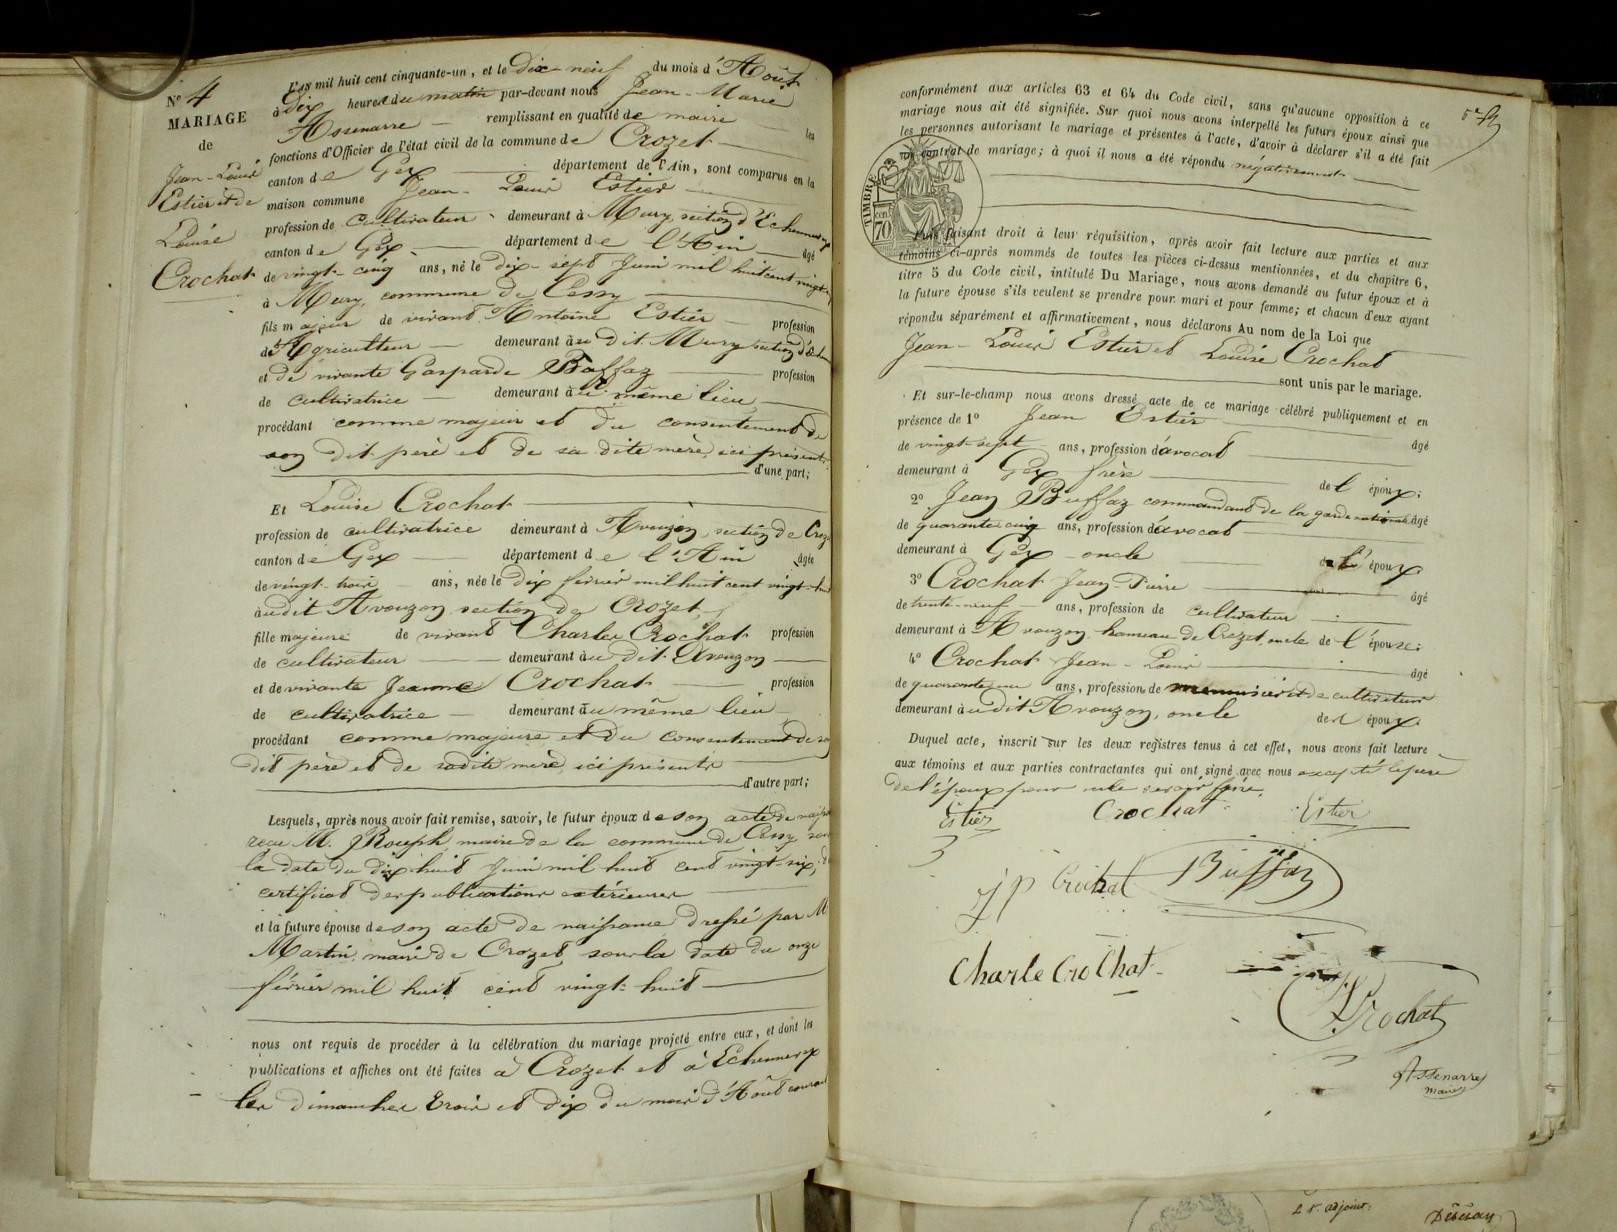 N° 4
MARIAGE
de
Jean-Louis
Estier et de
Louise
Crochat
L'an mil huit cent cinquante-un, et le Dix-neuf du mois d'Août
à Dix heures du matin par-devant nous Jean-Marie
Assenarre remplissant en qualité de maire les
fonctions d'Officier de l'état civil de la commune de Crozet
canton de Gex département de l'Ain, sont comparus en la
maison commune Jean-Louis Estier
profession de cultivateur demeurant à Mury, section d'Echenevex
canton de Gex département de l'Ain âgé
de vingt-cinq ans, né le dix-sept Juin mil huit cent vingt-
à Mury, commune de Cessy
fils majeur de vivant Antoine Estier profession
d'Agriculteur demeurant au dit Mury section d'
et de vivante Gasparde Buffaz profession
de cultivatrice demeurant au même lieu
procédant comme majeur et du consentement de
son dit père et de sa dite mère, ici présents
d'une part;
Et Louise Crochat
profession de cultivatrice demeurant à Avouzon, section de Croz
canton de Gex département de l'Ain âgée
de vingt-trois ans, née le dix février mil huit cent vingt-huit
au dit Avouzon, section de Crozet
fille majeure de vivant Charles Crochat profession
de cultivateur demeurant au dit Avouzon
et de vivante Jeanne Crochat profession
de cultivatrice demeurant au même lieu
procédant comme majeure et du consentement de son
dit père et de sa dite mère ici présents
d'autre part;
Lesquels, après nous avoir fait remise, savoir, le futur époux de son acte de
reçu M. Rouph, maire de la commune de Cessy sous
la date du dix-huit Juin mil huit cent vingt-six,
certificat des publications extérieures
et la future épouse de son acte de naissance dressé par M
Martin, maire de Crozet, sous la date du onze
février mil huit cent vingt-huit
nous ont requis de procéder à la célébration du mariage projeté entre eux, et dont les
publications et affiches ont été faites à Crozet et à Echenevex
les dimanches trois et dix du mois d'Août courant
conformément aux articles 63 et 64 du Code civil, sans qu'aucune opposition à ce
mariage nous ait été signifiée. Sur quoi nous avons interpellé les futurs époux ainsi que
les personnes autorisant le mariage et présentes à l'acte, d'avoir à déclarer s'il a été fait
un contrat de mariage; à quoi il nous a été répondu négativement
TIMBRE
70
Puis faisant droit à leur réquisition, après avoir fait lecture aux parties et aux
témoins ci-après nommés de toutes les pièces ci-dessus mentionnées, et du chapitre 6,
titre 5 du Code civil, intitulé Du Mariage, nous avons demandé au futur époux et à
la future épouse s'ils veulent se prendre pour mari et pour femme; et chacun d'eux ayant
répondu séparément et affirmativement, nous déclarons Au nom de la Loi que
Jean-Louis Estier et Louise Crochat
sont unis par le mariage.
Et sur-le-champ nous avons dressé acte de ce mariage célébré publiquement et en
présence de 1° Jean Estier âgé
de vingt-sept ans, profession d'avocat
demeurant à Gex frère de l'époux;
2° Jean Buffaz commandant de la garde nationale âgé
de quarante-cinq ans, profession d'avocat
demeurant à Gex oncle de l'époux
3° Crochat Jean-Pierre âgé
de trente-neuf ans, profession de cultivateur
demeurant à Avouzon, hameau de Crozet, oncle de l'épouse;
4° Crochat Jean-Louis âgé
de quarante-un ans, profession de menuisier et de cultivateur
demeurant au dit Avouzon, oncle de l'époux.
Duquel acte, inscrit sur les deux registres tenus à cet effet, nous avons fait lecture
aux témoins et aux parties contractantes qui ont signé avec nous excepté le père
de l'époux pour ne le savoir faire.
Estier Crochat Estier
jp Crochat Buffaz
Charle Crochat
Crochat
Assenarre
maire